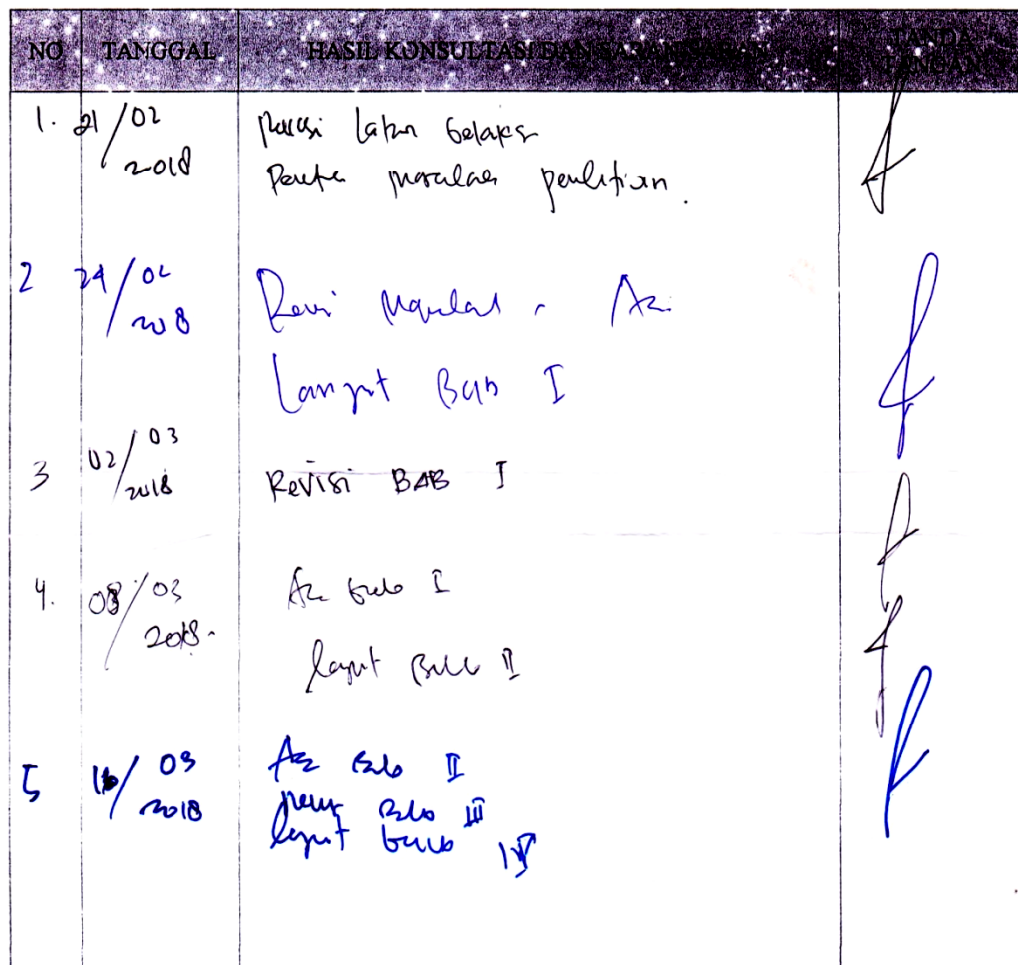 NO TANGGAL HASIL KONSULTASI DAN SARAN-SARAN TANDA TANGAN
1. 21/02 2018
latar belakang
masalah penelitian.
2 24/02 2018
Revisi
Lanjut Bab I
3 02/03 2018 Revisi BAB I
4. 08/03 2018. Acc Bab I
lanjut Bab II
5 16/03 2018 Acc Bab II
Bab III
lanjut Bab IV